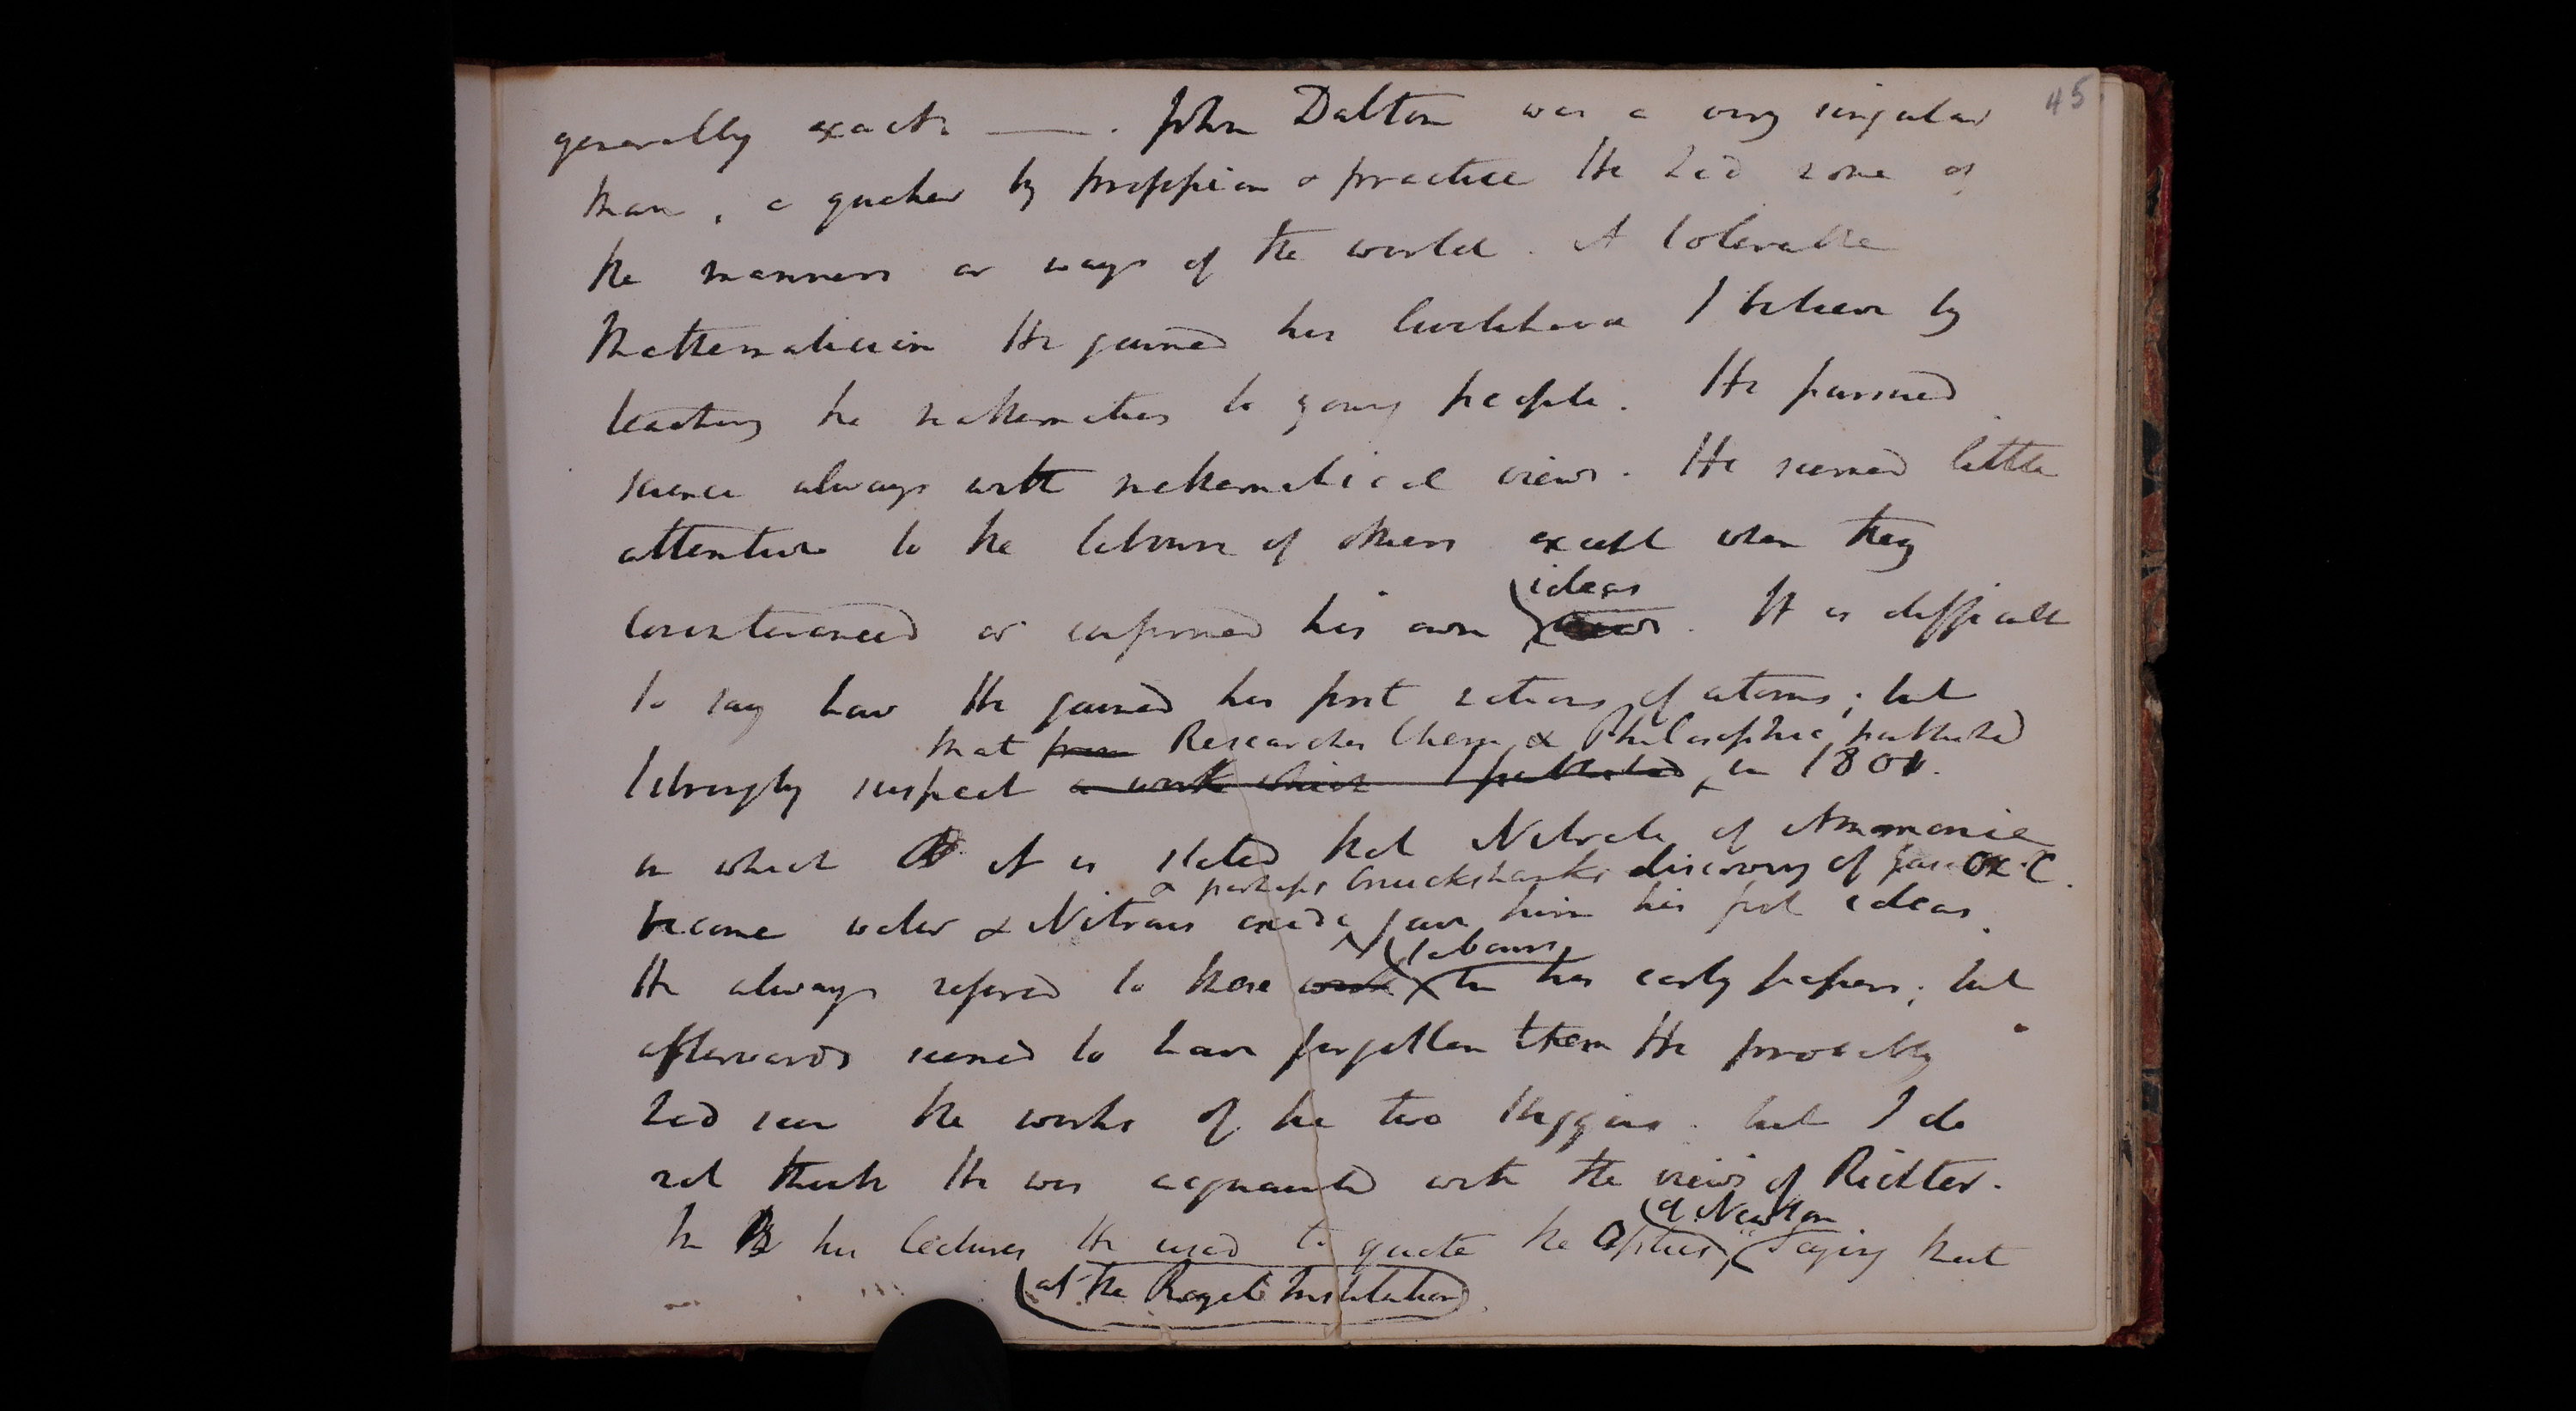 45
generally exact ——. John Dalton was a very singular
man, a quaker by profession & practice He had none of
the manners or ways of the world. A tolerable
Mathematician He gained his livelihood I believe by
teaching the mathematics to young people. He pursued
science always with mathematical views. He seemed little
attentive to the labours of others except when they
ideas
countenanced or confirmed his own views. It is difficult
to say how He gained his first notions of atoms; but
that from Researches Chem & Philosophic published
I strongly suspect a work which I published in 1800.
in which it is stated that Nitrate of Ammonia
& perhaps Cruickshanks discovery of gas ox. C.
become water & Nitrous oxide gave him his first ideas.
labours
He always refered to these work in his early papers; but
afterwards seemed to have forgotten them He probably
had seen the works of the two Higgins. but I do
not think He was acquainted with the views of Richter.
of Newton
In his lectures He used to quote the Optics, saying that
at the Royal Institution